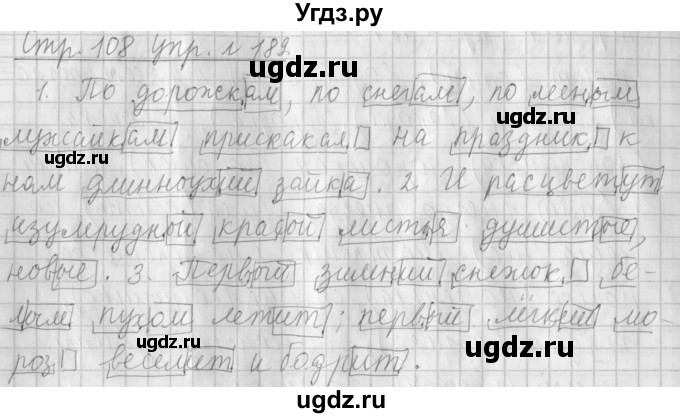 Угдз.ру
Стр. 108 упр. № 189.
1. По дорожкам, по снегам, по лесным
лужайкам прискакал на праздник к
нам длинноухий зайка. 2. И расцветут
изумрудной красой листья душистые,
новые. 3. Первый зимний снежок бе-
лым пухом летит; первый лёгкий мо-
роз веселит и бодрит.
ugdz.ru
ugdz.ru
ugdz.ru
ugdz.ru
ugdz.ru
ugdz.ru
ugdz.ru
ugdz.ru
ugdz.ru
ugdz.ru